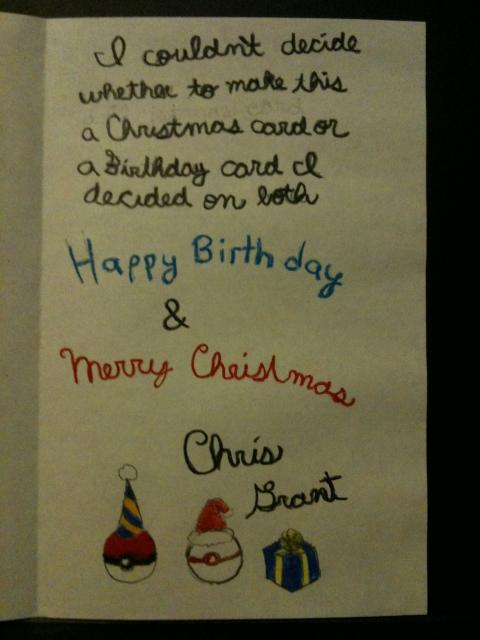 I couldn't decide
whether to make this
a Christmas card or
a Birthday card I
decided on both
Happy Birthday
&
Merry Christmas
Chris
Grant